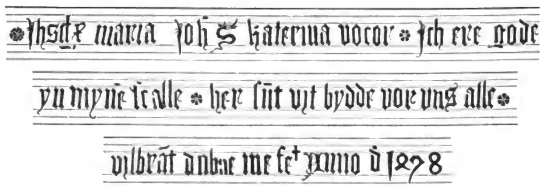 Jhs maria joh̄s katerina vocor Jch ere gode
yn myne scalle her sūt vit bydde vor vns alle
wlbrāt me fet anno d̄ 1478